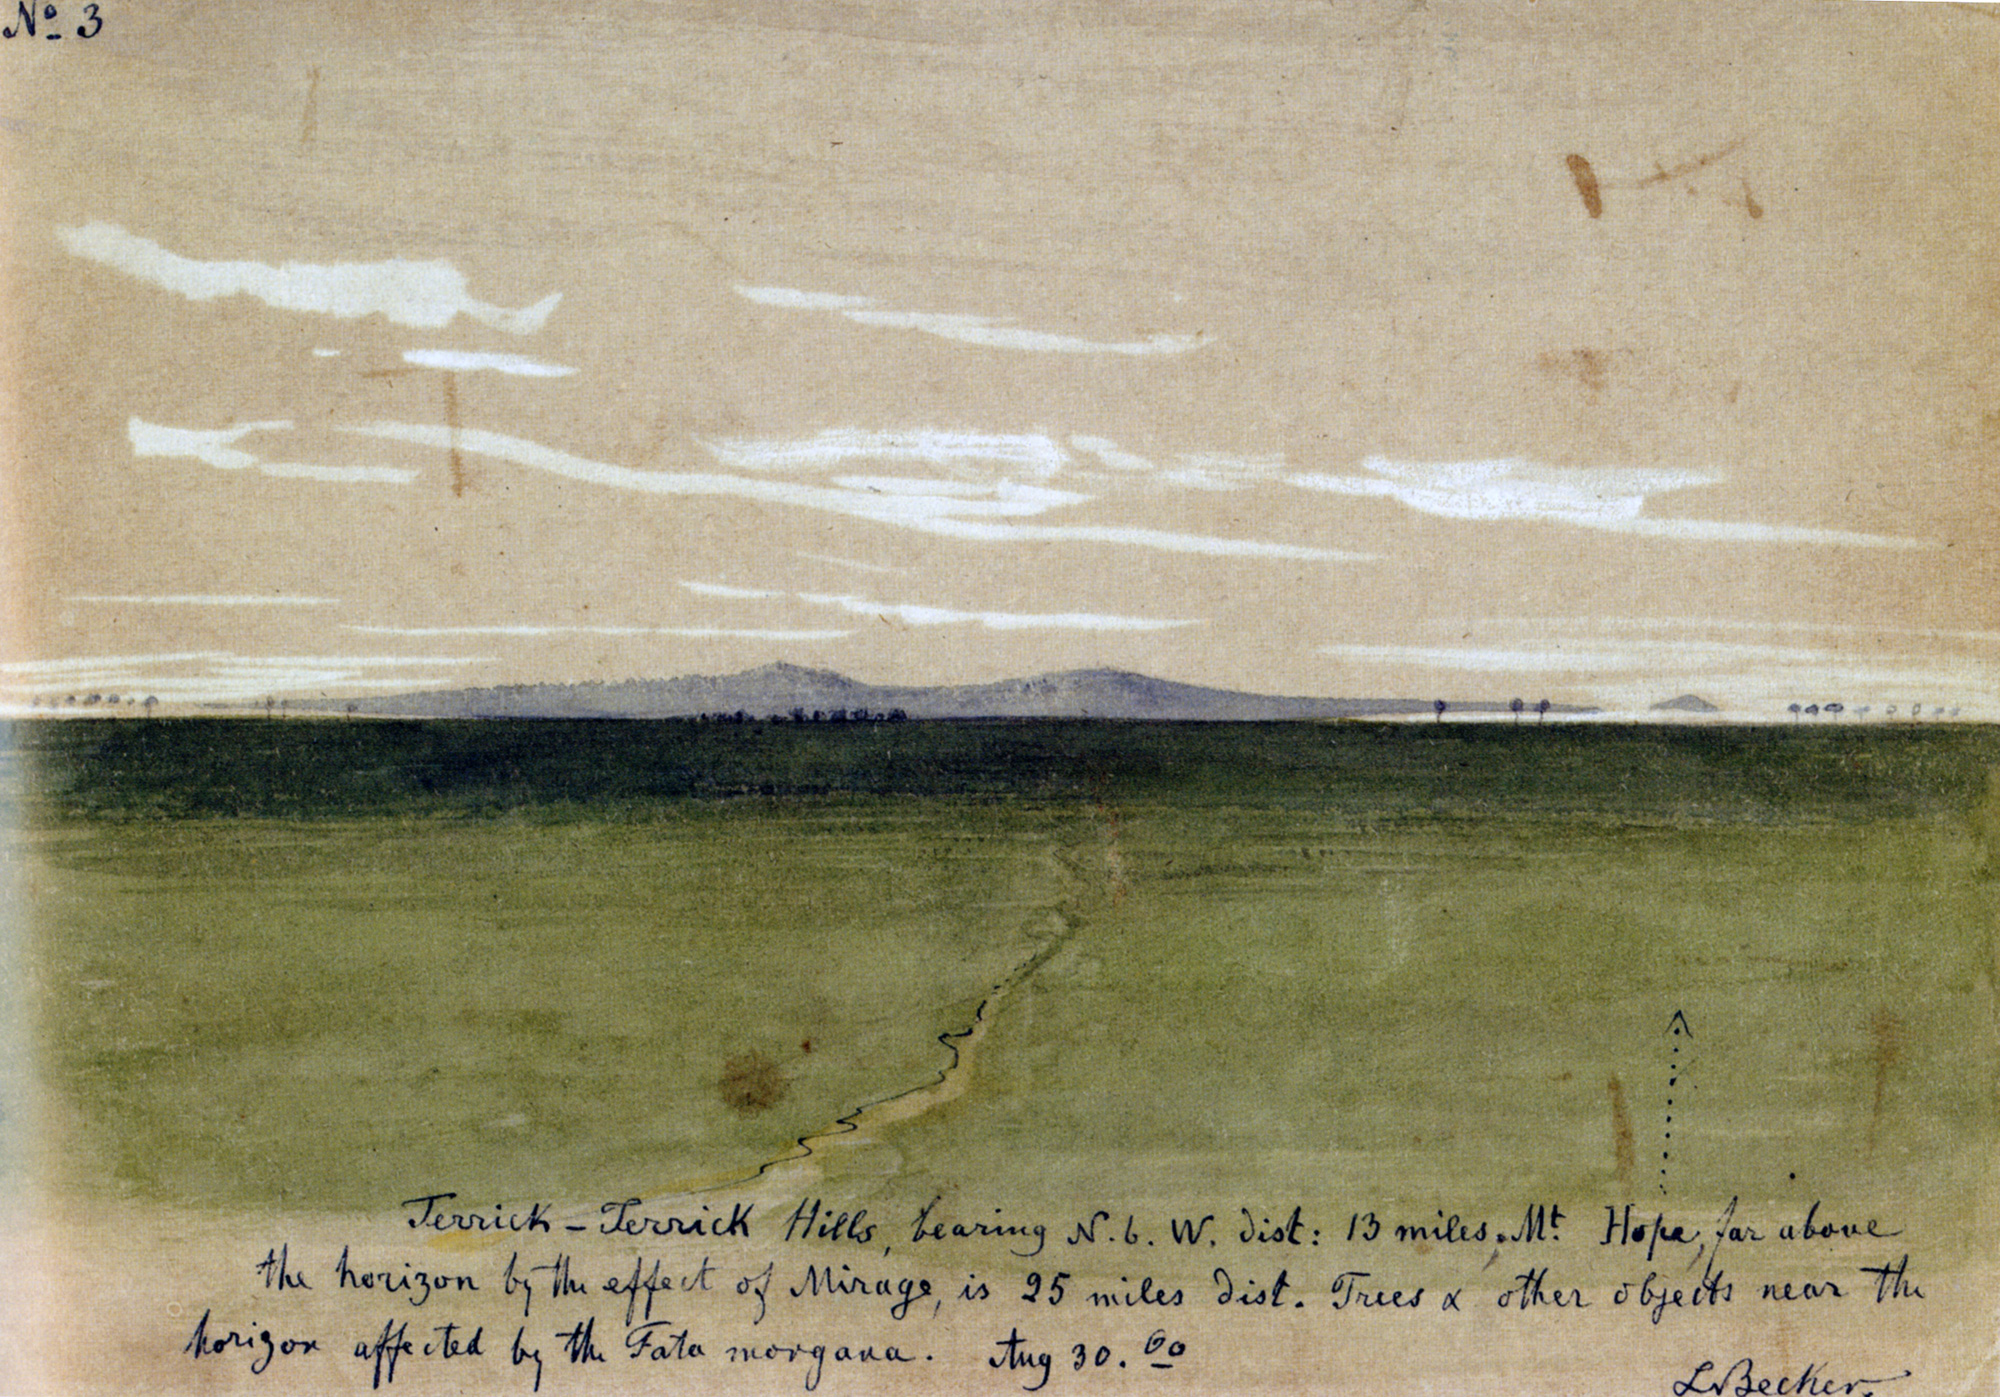 No 3
Terrick-Terrick Hills, bearing N. b. W. dist: 13 miles. Mt Hope, far above
the horizon by the effect of Mirage, is 25 miles dist. Trees & other objects near the
horizon affected by the Fata morgana. Aug 30. 60
L Becker.